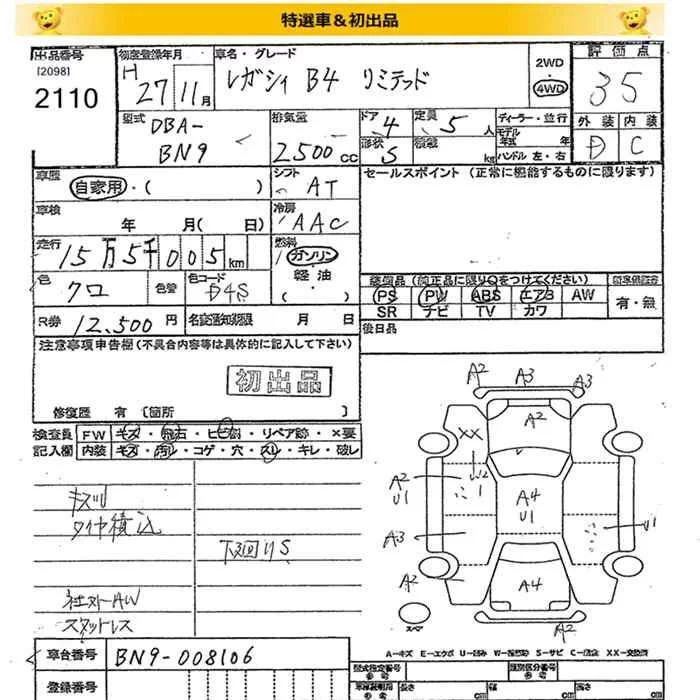 特選車&初出品
出品番号
[2098]
2110
初度登録年月
H 27年 11月
車名・グレード
レガシィ B4 リミテッド
2WD
4WD
評価点
35
型式
DBA-
BN9
排気量
2500cc
ドア
4
形状
S
定員
5人
積載
kg
ディーラー・並行
モデル年式 年
ハンドル 左・右
外装 内装
D C
車歴
自家用・( )
シフト
AT
セールスポイント (正常に機能するものに限ります)
車検
年 月( 日)
冷房
AAC
走行
15万5千005km
燃料
ガソリン
軽油
・( )
色
クロ
色替
色コード
D4S
装備品(純正品に限り○をつけてください)
PS PW ABS エアB AW
SR ナビ TV カワ
有・無
R券 12,500円
名義変更期限 月 日
後日品
注意事項申告欄(不具合内容等は具体的に記入して下さい)
初出品
修復歴 有[箇所 ]
検査員
記入欄
FW キズ・飛石・ヒビ割・リペア跡・×要
内装 キズ・汚レ・コゲ・穴・スレ・キレ・破レ
キズU
タイヤ積込
下廻りS
社外AW
スタッドレス
A2 A3 A3
A2
XX
U2
A2
U1
A4
U1
U1
A3
A2
A4
A2
スペア
A-キズ E-エクボ U-凹み W-補修跡 S-サビ C-腐食 XX-交換済
車台番号
BN9-008106
型式指定番号
参考
類別区分番号
参考
登録番号
長さ cm
幅 cm
高さ cm